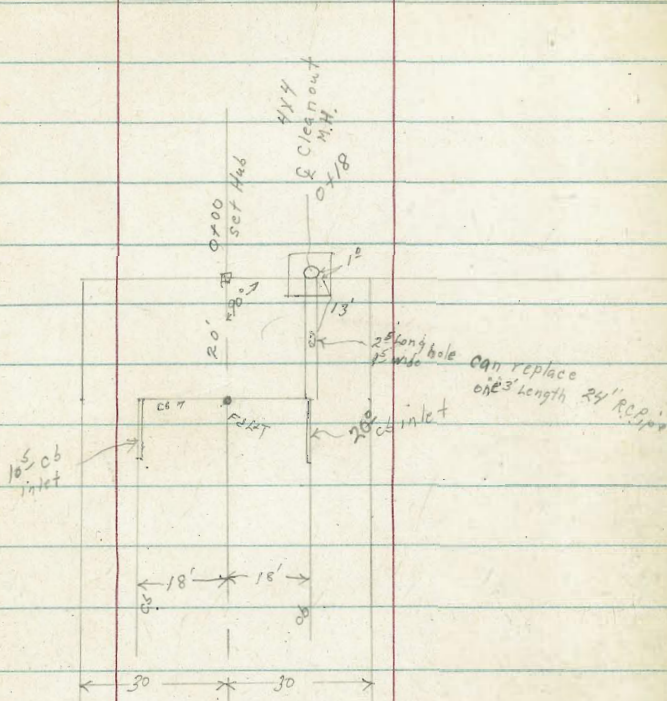 4x4
℄ Cleanout
M.H.
0+18
0+00
set Hub
1⁰
13'
20'
2⁵ Long hole
1⁵ wide
can replace
one 3' Length 24" R.C.P. pipe
F&LT
20⁰ cb inlet
10⁵ cb
inlet
18' 18'
30 30